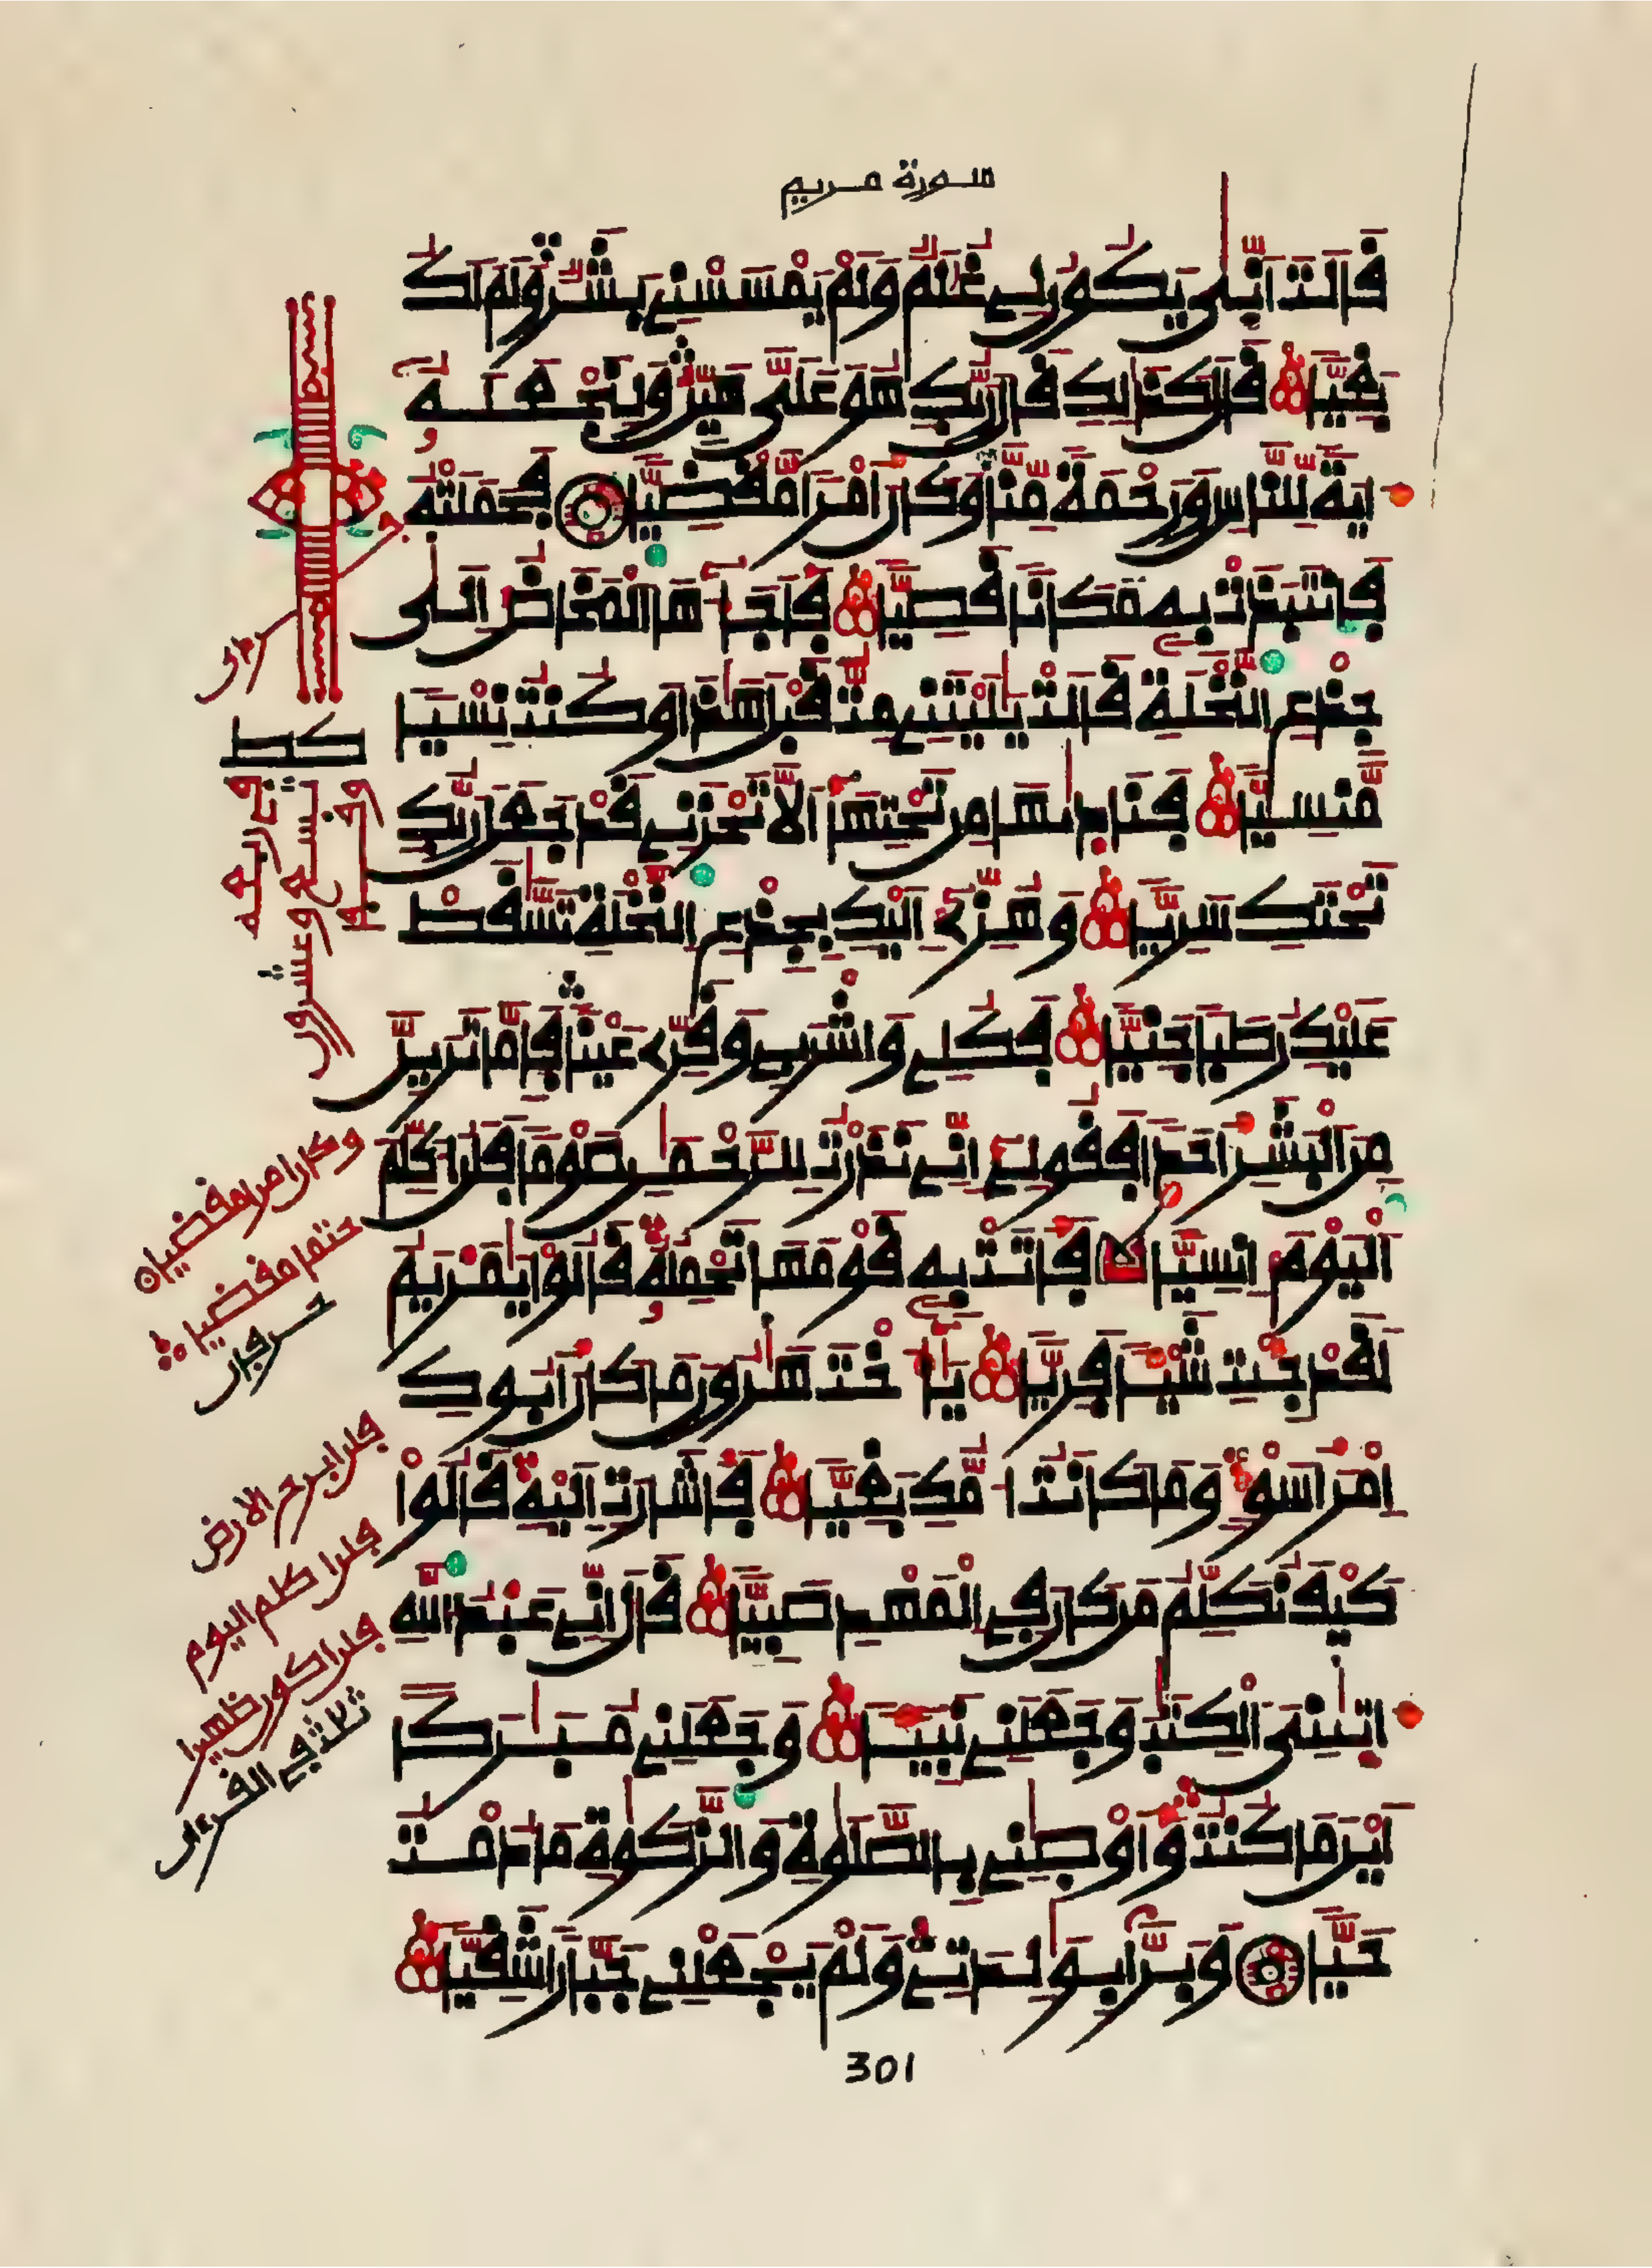 سورة مريم
قَالَتَ اَنّٜي يَكُونُ لِے غُلَٰمٌ وَلَمْ يَمْسَسْنِے بَشَرٌ وَلَمَ اَكُ
بَغِيّاً قَالَ كَذَٰلِكِ قَالَ رَبُّكِ هُوَ عَلَيَّ هَيِّنٌ وَلِنَجْعَلَهُۥ
ءَايَةً لِّلنَّاسِ وَرَحْمَةً مِّنَّا وَكَانَ أَمْراً مَّقْضِيّاً فَحَمَلَتْهُ
فَانتَبَذَتْ بِهِۦ مَكَاناً قَصِيّاً فَأَجَآءَهَا اَلْمَخَاضُ إِلَيٰ
جِذْعِ اِلنَّخْلَةِ قَالَتْ يَٰلَيْتَنِے مِتُّ قَبْلَ هَٰذَا وَكُنتُ نِسْياً
مَّنسِيّاً فَنَادٜيٰهَا مِن تَحْتِهَا أَلَّا تَحْزَنِے قَدْ جَعَلَ رَبُّكِ
تَحْتَكِ سَرِيّاً وَهُزِّے إِلَيْكِ بِجِذْعِ اِلنَّخْلَةِ تَسَّٰقَطْ
عَلَيْكِ رُطَباً جَنِيّاً فَكُلِے وَاشْرَبِے وَقَرِّے عَيْناً فَإِمَّا تَرَيِنَّ
مِنَ اَلْبَشَرِ أَحَداً فَقُولِے إِنِّے نَذَرْتُ لِلرَّحْمَٰنِ صَوْماً فَلَنُ اكَلِّمَ
اَلْيَوْمَ إِنسِيّاً فَأَتَتْ بِهِۦ قَوْمَهَا تَحْمِلُهُۥ قَالُواْ يَٰمَرْيَمُ
لَقَدْ جِئْتِ شَيْـٔاً فَرِيّاً يَٰٓأُخْتَ هَٰرُونَ مَا كَانَ أَبُوكِ
اِمْرَأَ سَوْءٍ وَمَا كَانَتُ امُّكِ بَغِيّاً فَأَشَارَتِ اِلَيْهِ قَالُواْ
كَيْفَ نُكَلِّمُ مَن كَانَ فِے اِلْمَهْدِ صَبِيّاً قَالَ إِنِّے عَبْدُ اُللَّهِ
ءَاتٜيٰنِيَ اَلْكِتَٰبَ وَجَعَلَنِے نَبِيٓـٔاً وَجَعَلَنِے مُبَٰرَكاً
اَيْنَ مَا كُنتُ وَأَوْصَٰنِے بِالصَّلَوٰةِ وَالزَّكَوٰةِ مَا دُمْتُ
حَيّاً وَبَرّاً بِوَٰلِدَتِے وَلَمْ يَجْعَلْنِے جَبَّاراً شَقِيّاً
كط
تسع وعشرون
وكان امرا مقضيا
حتما مقضيا
حرفان
فلن ابرح الارض
فلن اكلم اليوم
فلن اكون ظهيرا
ثلاث في القرءان
301